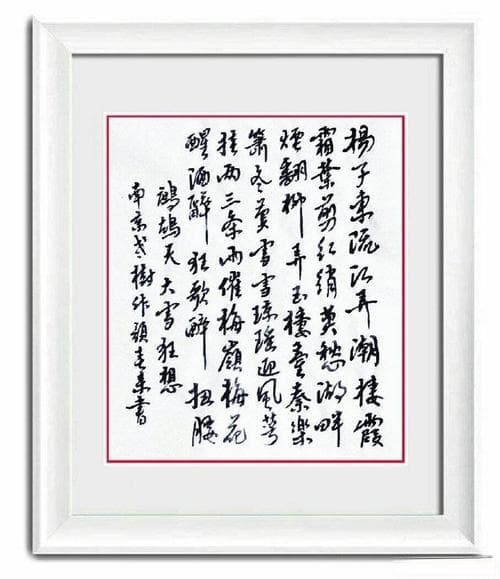 楊子東流江弄潮棲霞
霜葉剪紅綃莫愁湖畔
煙翻柳弄玉樓臺奏樂
簫冬莫雪雪瓊瑤迎風萼
挂兩三條雨催梅嶺梅花
醒酒醉狂歌醉扭腰
鷓鴣天大雪狂想
南京老樹作春来書